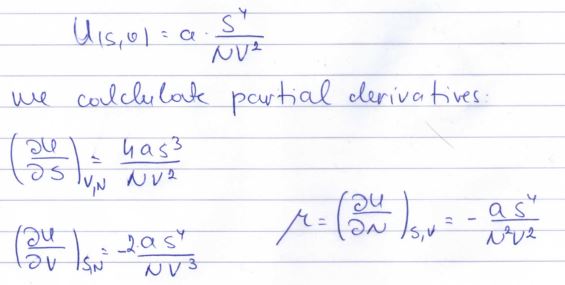 U(S,υ) = a · S⁴/NV²
we calclulate partial derivatives:
(∂U/∂S)V,N = 4aS³/NV²
(∂U/∂V)S,N = -2·aS⁴/NV³
μ = (∂U/∂N)S,V = - aS⁴/N²V²